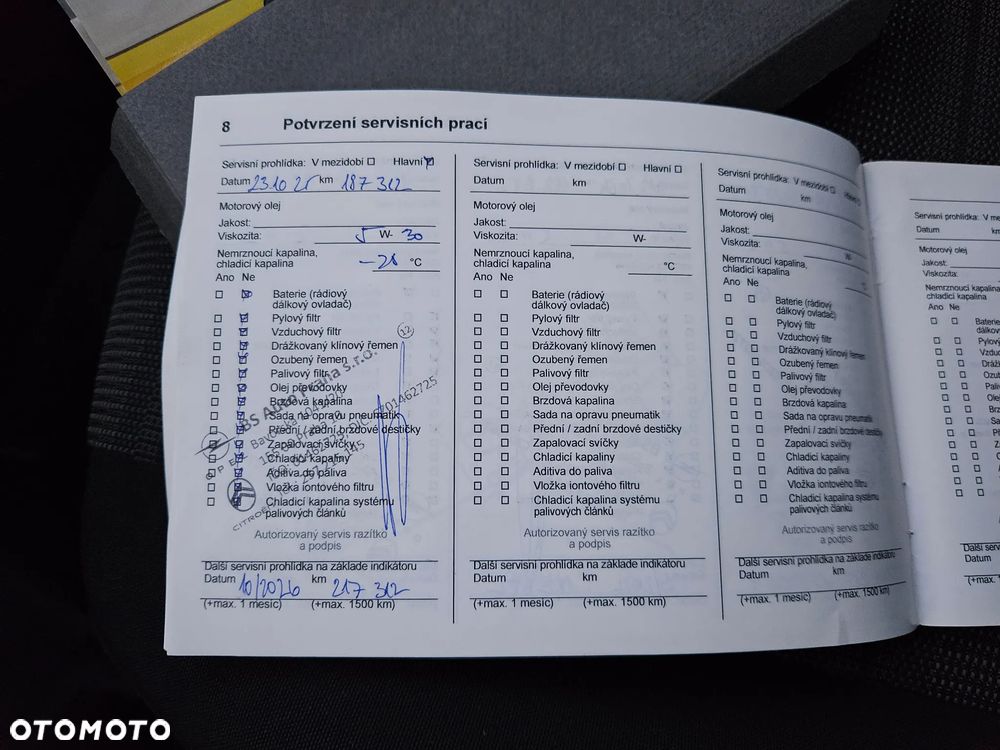 8 Potvrzení servisních prací
Servisní prohlídka: V mezidobí Hlavní
Datum 23.10 25 km 187 312
Motorový olej
Jakost:
Viskozita: 5 W- 30
Nemrznoucí kapalina,
chladicí kapalina -28 °C
Ano Ne
Baterie (rádiový
dálkový ovladač)
Pylový filtr
Vzduchový filtr
Drážkovaný klínový řemen
Ozubený řemen
Palivový filtr
Olej převodovky
Brzdová kapalina
Sada na opravu pneumatik
Přední / zadní brzdové destičky
Zapalovací svíčky
Chladicí kapaliny
Aditiva do paliva
Vložka iontového filtru
Chladicí kapalina systému
palivových článků
BS Auto Praha s.r.o.
12
OPEL
CITROEN
Autorizovaný servis razítko
a podpis
Další servisní prohlídka na základe indikátoru
Datum 10/2026 km 217 312
(+max. 1 měsíc) (+max. 1500 km)
Servisní prohlídka: V mezidobí Hlavní
Datum km
Motorový olej
Jakost:
Viskozita: W-
Nemrznoucí kapalina,
chladicí kapalina °C
Ano Ne
Baterie (rádiový
dálkový ovladač)
Pylový filtr
Vzduchový filtr
Drážkovaný klínový řemen
Ozubený řemen
Palivový filtr
Olej převodovky
Brzdová kapalina
Sada na opravu pneumatik
Přední / zadní brzdové destičky
Zapalovací svíčky
Chladicí kapaliny
Aditiva do paliva
Vložka iontového filtru
Chladicí kapalina systému
palivových článků
Autorizovaný servis razítko
a podpis
Další servisní prohlídka na základe indikátoru
Datum km
(+max. 1 měsíc) (+max. 1500 km)
Servisní prohlídka: V mezidobí Hlavní
Datum km
Motorový olej
Jakost:
Viskozita: W-
Nemrznoucí kapalina,
chladicí kapalina °C
Ano Ne
Baterie (rádiový
dálkový ovladač)
Pylový filtr
Vzduchový filtr
Drážkovaný klínový řemen
Ozubený řemen
Palivový filtr
Olej převodovky
Brzdová kapalina
Sada na opravu pneumatik
Přední / zadní brzdové destičky
Zapalovací svíčky
Chladicí kapaliny
Aditiva do paliva
Vložka iontového filtru
Chladicí kapalina systému
palivových článků
Autorizovaný servis razítko
a podpis
Další servisní prohlídka na základe indikátoru
Datum km
(+max. 1 měsíc) (+max. 1500 km)
Servisní prohlídka: V me
Datum
Motorový olej
Jakost:
Viskozita:
Nemrznoucí kapalin
chladicí kapalina
Ano Ne
Baterie
dálkov
Pylov
Vzdu
Drá
Ozu
Pali
Ole
Br
Sa
Další serv
Datum
(+max. 1
OTOMOTO